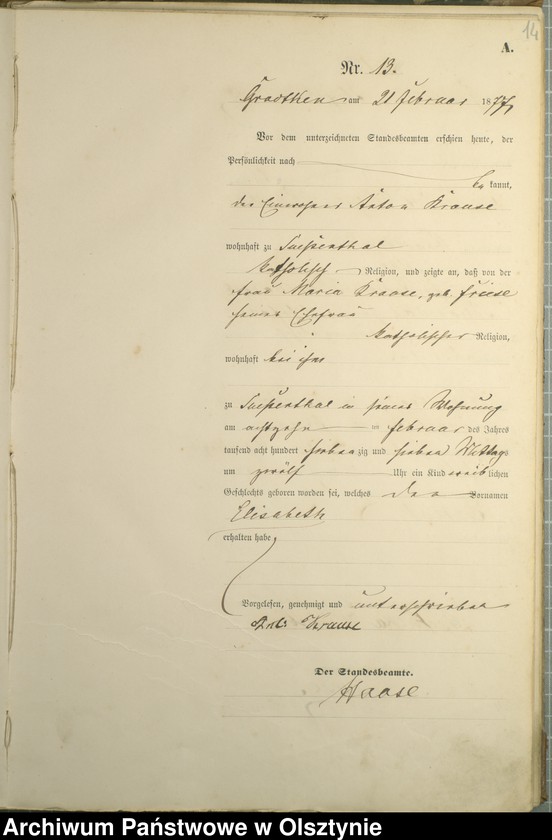 14
A.
Nr. 13.
Gradtken am 21 Februar 1877
Vor dem unterzeichneten Standesbeamten erschien heute, der
Persönlichkeit nach
be kannt,
der Einwohner Anton Krause
wohnhaft zu
katholisch Religion, und zeigte an, daß von der
Frau Maria Krause, geb. Friese
seiner Ehefrau
katholischer Religion,
wohnhaft bei ihm
zu in seiner Wohnung
am achtzehn Februar des Jahres
tausend acht hundert sieben zig und sieben Mittags
um zwölf Uhr ein Kind weib lichen
Geschlechts geboren worden sei, welches den Vornamen
Elisabeth
erhalten habe
Vorgelesen, genehmigt und unterschrieben
Krause
Der Standesbeamte.
Haase
Archiwum Państwowe w Olsztynie